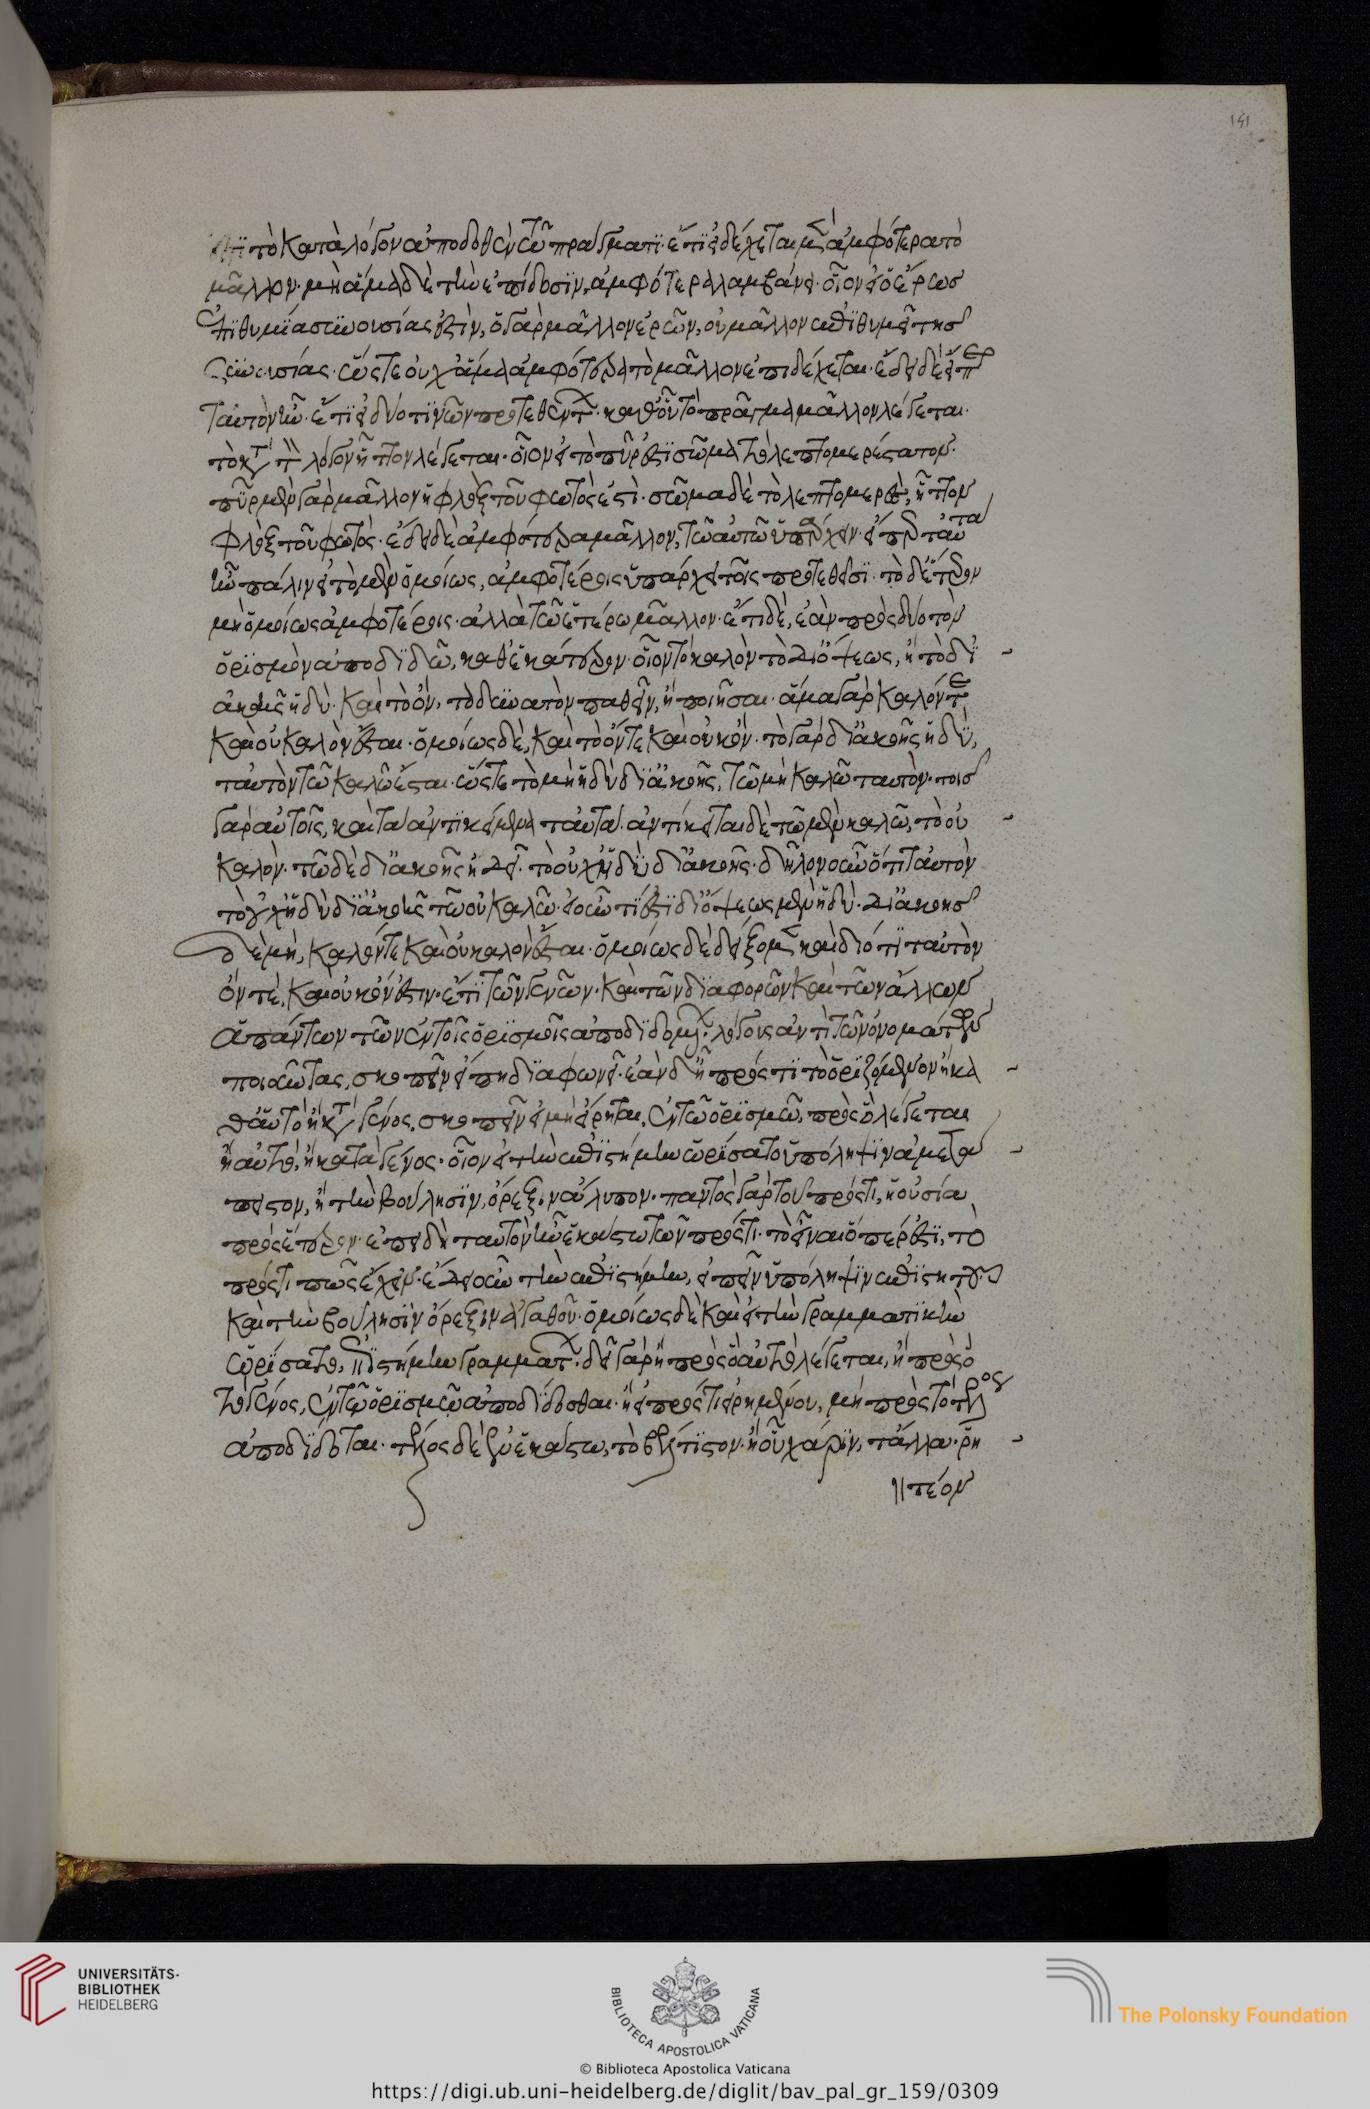 τὸ κατὰ λόγον ἀποδοθὲν τῶ πράγματι· ἔτι εἰ δέχεται μὲν ἀμφότερα τὸ
μᾶλλον· μὴ ἅμα δὲ τὴν ἐπίδοσιν, ἀμφότερα λαμβάνει· οἷον εἰ ὁ ἔρως
ἐπιθυμία συνουσίας ἐστὶν, ὁ γὰρ μᾶλλον ἐρῶν, οὐ μᾶλλον ἐπιθυμεῖ τῆς
συνουσίας· ὥστε οὐχ ἅμα ἀμφότερα τὸ μᾶλλον ἐπιδέχεται· ἔδει δὲ εἴπερ
ταὐτὸν ἦν· ἔτι εἰ δύο τινῶν προτεθέντων· καθ' οὗ τὸ πρᾶγμα μᾶλλον λέγεται·
τὸ κατὰ τὸν λόγον ἧττον λέγεται· οἷον εἰ τὸ πῦρ ἐστὶ σῶμα τὸ λεπτομερέστατον·
πῦρ μὲν γὰρ μᾶλλον ἡ φλὸξ τοῦ φωτὸς ἐστὶ· σῶμα δὲ τὸ λεπτομερὲς, ἧττον
φλὸξ τοῦ φωτὸς· ἔδει δὲ ἀμφότερα μᾶλλον, τῶ αὐτῶ ὑπάρχειν· εἴπερ ταυτὰ
ἦν πάλιν εἰ τὸ μὲν ὁμοίως, ἀμφοτέροις ὑπάρχει τοῖς προτεθεῖσι· τὸ δ' ἕτερον
μὴ ὁμοίως ἀμφοτέροις· ἀλλὰ τῶ ἑτέρω μᾶλλον· ἔτι δὲ, ἐὰν πρὸς δύο τὸν
ὁρισμὸν ἀποδιδῶ, καθ' ἑκάτερον· οἷον τὸ καλὸν τὸ δι' ὄψεως, ἢ τὸ δι'
ἀκοῆς ἡδύ· καὶ τὸ ὂν, τὸ δυνατὸν παθεῖν, ἢ ποιῆσαι· ἅμα γὰρ καλόν τε
καὶ οὐ καλὸν ἔσται· ὁμοίως δὲ, καὶ τὸ ὄν τε καὶ οὐκ ὄν· τὸ γὰρ δι' ἀκοῆς ἡδὺ,
ταὐτὸν τῶ καλῶ ἔσται· ὥστε τὸ μὴ ἡδὺ δι' ἀκοῆς, τῶ μὴ καλῶ ταυτὸν· τοῖς
γὰρ αὐτοῖς, καὶ τὰ ἀντικείμενα ταῦτα· ἀντίκειται δὲ τῶ μὲν καλῶ, τὸ οὐ
καλὸν· τῶ δὲ δι' ἀκοῆς ἡδεῖ· τὸ οὐχ ἡδὺ δι' ἀκοῆς· δῆλον οὖν ὅτι ταὐτὸν
τὸ οὐχ ἡδὺ δι' ἀκοῆς τῶ οὐ καλῶ· εἰ οὖν τί ἐστι δι' ὄψεως μὲν ἡδὺ· δι' ἀκοῆς
δὲ μὴ, καλόν τε καὶ οὐ καλὸν ἔσται· ὁμοίως δὲ δείξομεν καὶ διότι ταὐτὸν
ὄν τε, καὶ οὐκ ὄν ἐστιν· ἔτι τῶν γενῶν· καὶ τῶν διαφορῶν καὶ τῶν ἄλλων
ἁπάντων τῶν ἐν τοῖς ὁρισμοῖς ἀποδιδομένων· λόγους ἀντὶ τῶν ὀνομάτων
ποιοῦντας, σκοπεῖν εἴ τι διαφωνεῖ· ἐὰν δ' ἦ πρός τι τὸ ὁριζόμενον ἢ κα
θ' αὑτὸ ἢ κατὰ γένος, σκοπεῖν εἰ μὴ εἴρηται, ἐν τῶ ὁρισμῶ, πρὸς ὃ λέγεται
ἢ αὐτὸ, ἢ κατὰ γένος· οἷον εἰ τὴν ἐπιστήμην ὡρίσατο ὑπόληψιν ἀμετά
πειστον, ἢ τὴν βούλησιν, ὄρεξιν ἄλυπον· παντὸς γὰρ τοῦ πρός τι, ἡ οὐσία
πρὸς ἕτερον· ἐπειδὴ ταυτὸν ἦν ἑκάστω τῶν πρός τι· τὸ εἶναι ὅπερ ἐστὶ, τὸ
πρός τι πῶς ἔχειν· ἔδει οὖν τὴν ἐπιστήμην, εἰπεῖν ὑπόληψιν ἐπιστητοῦ
καὶ τὴν βούλησιν ὄρεξιν ἀγαθοῦ· ὁμοίως δὲ καὶ εἰ τὴν γραμματικὴν
ὡρίσατο, ἐπιστήμην γραμμάτων· δεῖ γὰρ ἢ πρὸς ὃ αὐτὸ λέγεται, ἢ πρὸς ὅ
τὸ γένος, ἐν τῶ ὁρισμῶ ἀποδίδοσθαι· ἢ εἰ πρός τι εἰρημένον, μὴ πρὸς τὸ τέλος
ἀποδίδοται· τέλος δὲ ἐν ἑκάστω, τὸ βέλτιστον· ἢ οὗ χάριν, τἄλλα· ῥη
τέον
141
UNIVERSITÄTS-
BIBLIOTHEK
HEIDELBERG
BIBLIOTECA APOSTOLICA VATICANA
The Polonsky Foundation
© Biblioteca Apostolica Vaticana
https://digi.ub.uni-heidelberg.de/diglit/bav_pal_gr_159/0309